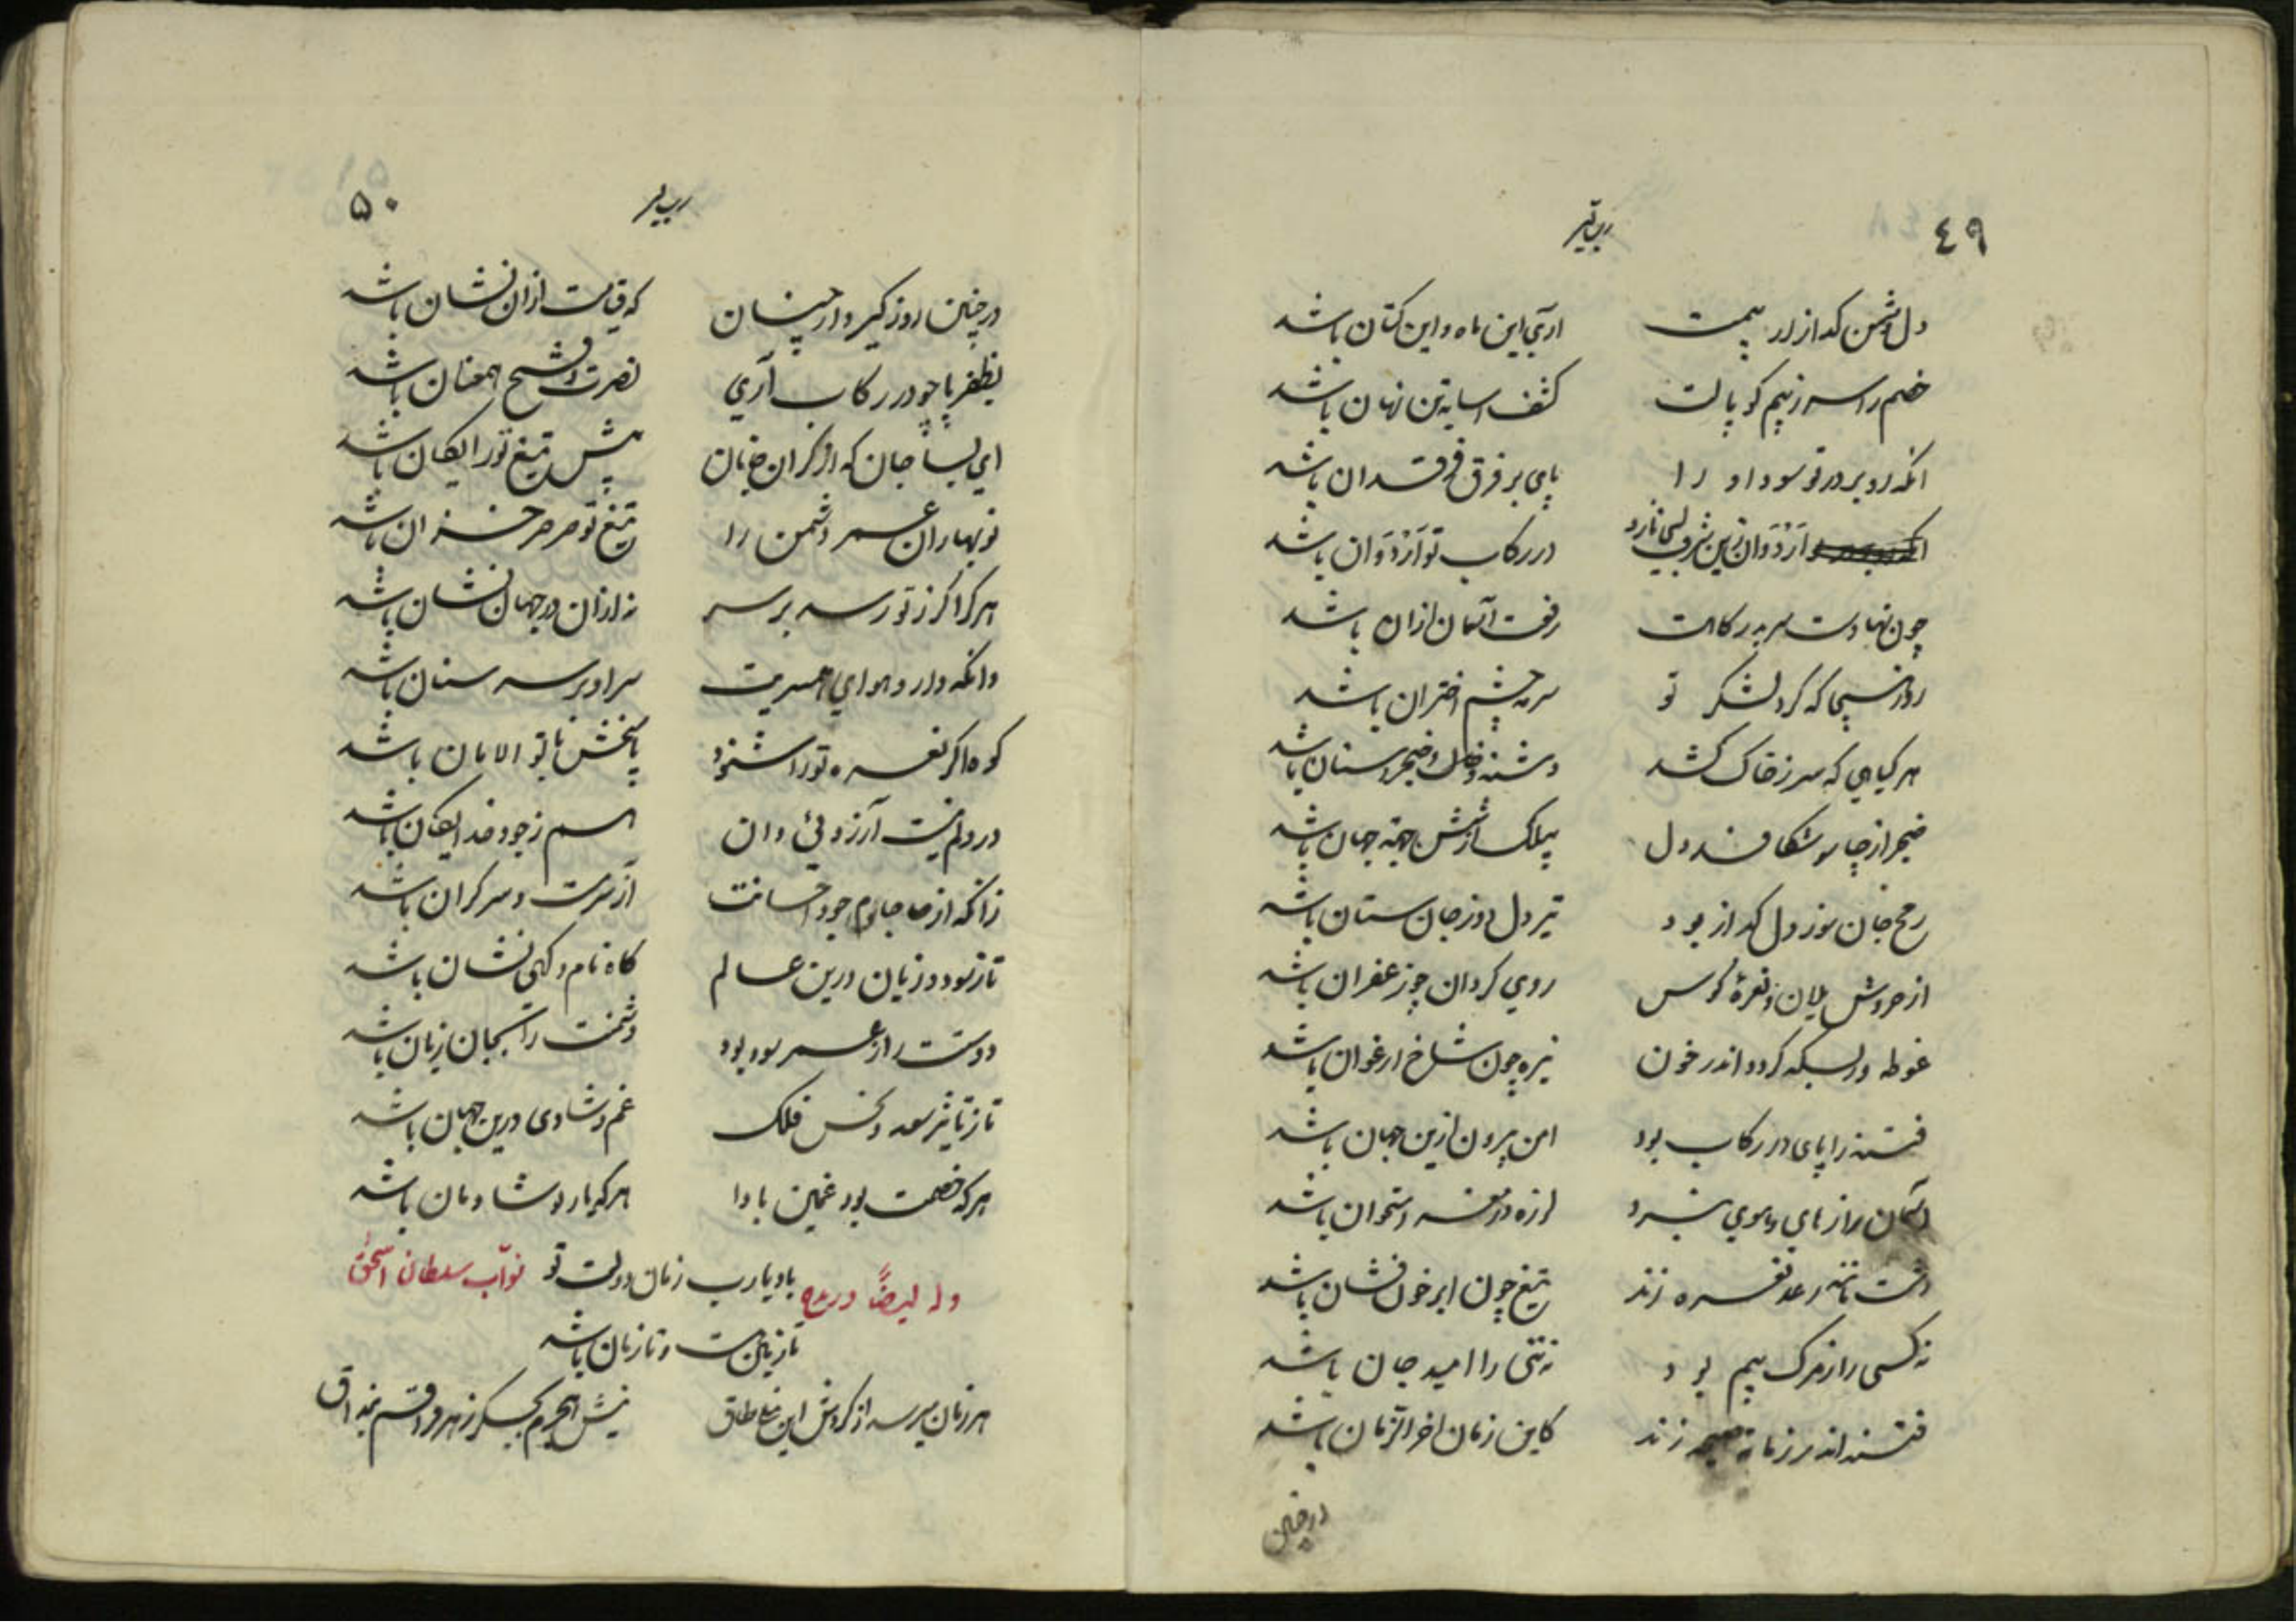 ٤٩
دل دشمن گدازد از بیمت    آری این ماه و این کتان باشد
خصم را سر ز بیم کوپالت    کشف اسا بتن نهان باشد
انکه رو بر در تو سود او را    پای بر فرق فرقدان باشد
در رکاب تو اَرْدَوان باشد
چون نهادست سر بدرگاهت    رفعت آسمان ازان باشد
که گرد لشکر تو    سرمه چشم اختران باشد
هر گیاهی که سر ز خاک کشد    دشنه و خنجر و سنان باشد
خنجر از چار سو شکافد دل    پیلک از شش جهة جهان باشد
رمح جان سوز دل گداز بود    تیر دل دوز جان ستان باشد
از خروش یلان و نعرهٔ کوس    روی گردان چو زعفران باشد
غوطه در بسکه گردد اندر خون    نیزه چون شاخ ارغوان باشد
فتنه را پای در رکاب بود    امن بیرون ازین جهان باشد
آسمان را ز های و هوی نبرد    لرزه در مغز و استخوان باشد
نعره زند    تیغ چون ابر خون فشان باشد
نه کسی را ز مرگ بیم بود    نه تنی را امید جان باشد
فتنه اندر زمانه صیحه زند    کاین زمان اخر الزمان باشد
درچنین
۵۰
در چنین روز گیر و دار چنان    که قیامت ازان نشان باشد
بظفر پا چو در رکاب آری    نصرت و فتح همعنان باشد
ای بسا جان که از گران جانان    پیش تیغ تو رایگان باشد
نوبهاران عمر دشمن را    تیغ تو صرصر خزان باشد
هر کرا گرز تو رسد بر سر    نه ازان در جهان نشان باشد
وانکه دارد هوای همسریت    سر او بر سر سنان باشد
کوه اگر نعره تو را شنود    پاسخش با تو الامان باشد
در دلم نیست آرزوئی وان    هم ز جود خدایگان باشد
زانکه از جام جود احسانت    آز سرمست و سرگران باشد
تا ز سود و زیان درین عالم    گاه نام و گهی نشان باشد
دوستت را ز عمر سود بود    دشمنت را بجان زیان باشد
تا ز تاثیر سعد و نحس فلک    غم و شادی درین جهان باشد
هر که خصمت بود غمین بادا    هر که یار تو شادمان باشد
باد یارب زمان دولت تو
تا زمین است و تا زمان باشد
وله ایضاً در مدح نوّاب سلطان اسحق
هر زمان میرسد از گردش این نه طاق    نیش هجرم بجگر زهر فراقم بمذاق